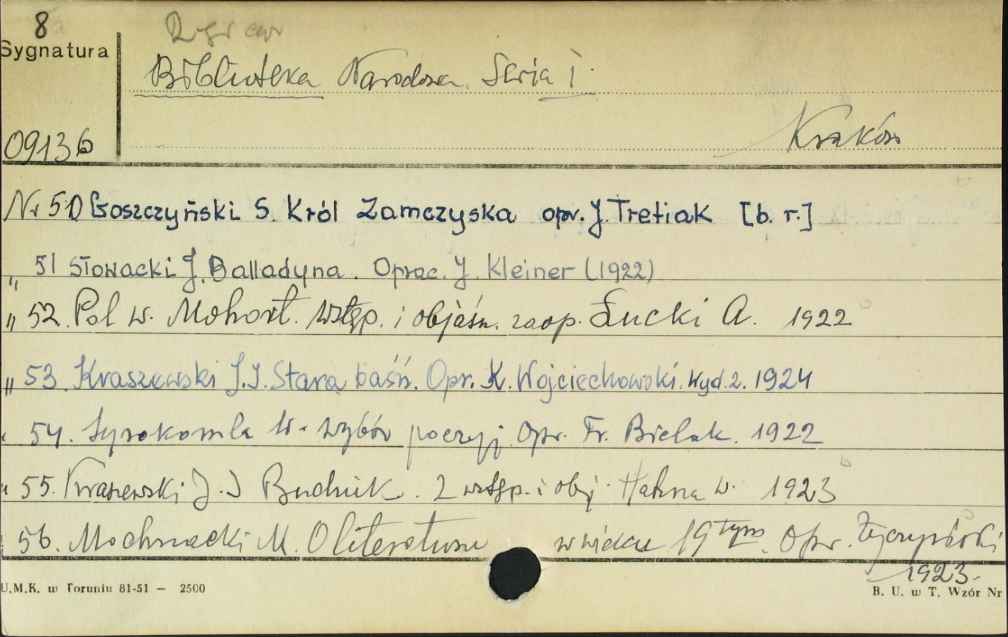 8
Sygnatura
Biblioteka Narodowa. Seria I.
Kraków
09136
Nr 50 Goszczyński S. Król Zamczyska opr. J. Tretiak [b. r.]
„ 51 Słowacki J. Balladyna. Oprac. J. Kleiner (1922)
„ 52. Pol W. Mohort. Wstęp. i objaśn. zaop. Łucki A. 1922
„ 53 Kraszewski J.I. Stara baśń. Opr. K. Wojciechowski. Wyd. 2. 1924
54. Syrokomla W. Wybór poezyj Opr. Fr. Bielak. 1922
„ 55. Kraszewski J. I Budnik. Z wstęp. i obj. Hahna W. 1923
56. Mochnacki M. O literaturze w wieku 19tym. Opr. Życzyński
1923.
U.M.K. w Toruniu 81-51 — 2500
B. U. w T. Wzór Nr